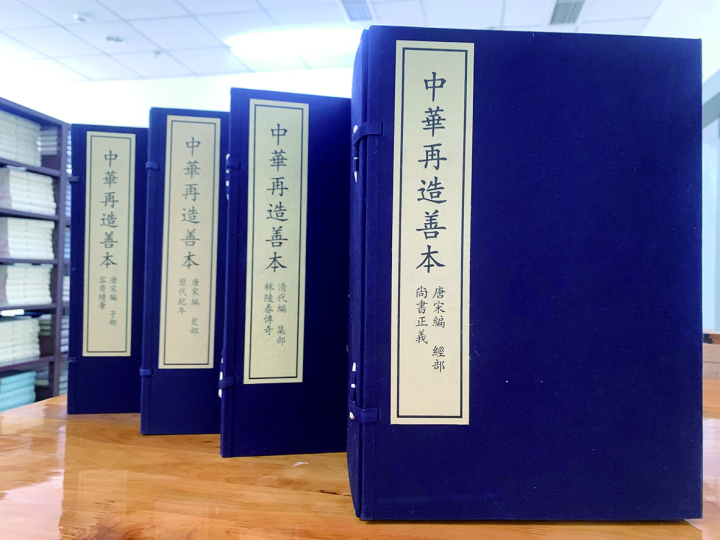 中華再造善本
唐宋編 經部
尚書正義
中華再造善本
清代編 集部
秣陵春傳奇
中華再造善本
唐宋編 史部
歷代紀年
中華再造善本
唐宋編 子部
容齋續筆